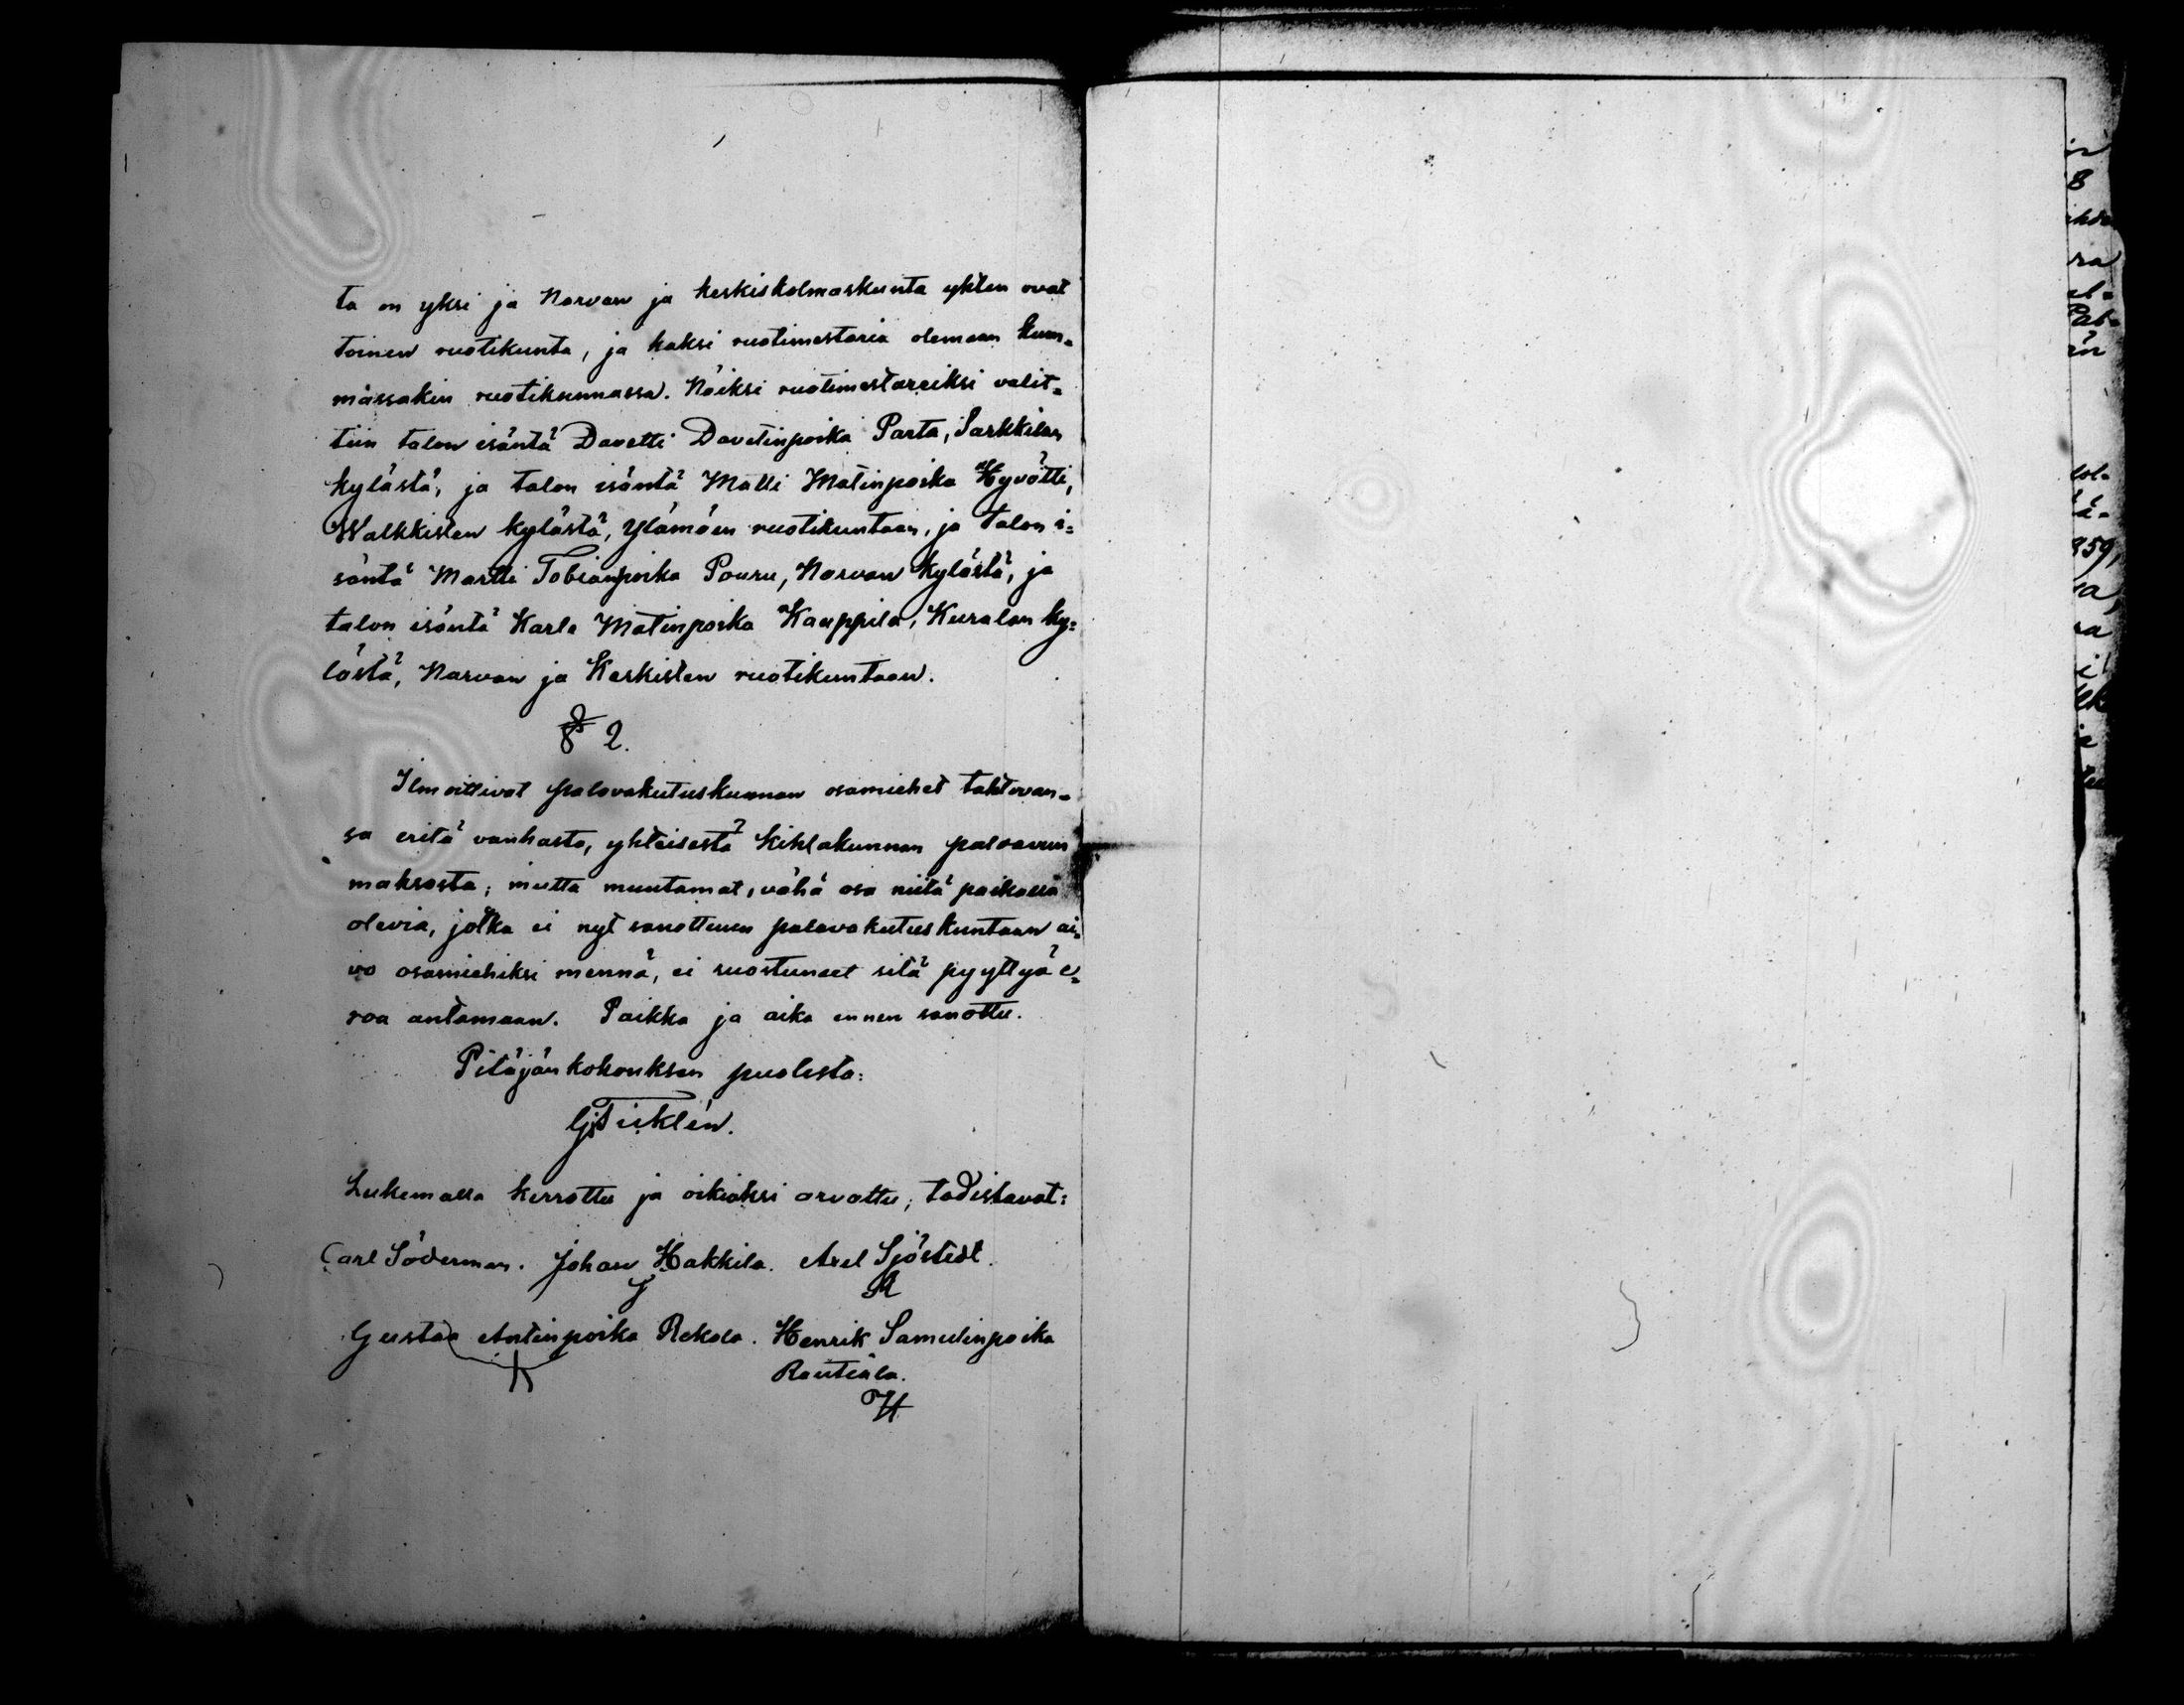 ta on yksi ja Narvan ja keskiskolmaskunta yhten ovat
toinen ruotikunta, ja kaksi ruotimestaria olemaan kum-
massakin ruotikunnassa. Näiksi ruotimestareiksi valit-
tiin talon isäntä Davetti Davetinpoika Parta, Sarkkilan
kylästä, ja talon isäntä Matti Matinpoika Hyvätti,
Walkkisten kylästä, Ylämäen ruotikuntaan, ja talon i-
säntä Martti Tobianpoika Pouru, Narvan kylästä, ja
talon isäntä Karle Matinpoika Kauppila, Kuralan ky-
lästä, Narvan ja Keskisten ruotikuntaan.
§ 2.
Ilmoittivat palovakutuskunnan osamiehet tahtovan-
sa eritä vanhasta, yhteisestä kihlakunnan paloavun
maksosta; mutta muutamat, vähä osa niitä paikalla
olevia, jotka ei nyt sanottuun palovakutuskuntaan ai-
vo osamiehiksi mennä, ei suostuneet sitä pyyttyä e-
roa antamaan. Paikka ja aika ennen sanottu.
Pitäjänkokouksen puolesta:
G Ticklén.
Lukemalla kerrottu ja oikiaksi arvattu; todistavat:
Carl Söderman. Johan Hakkila. Axel Sjöstedt.
Gustaa Antinpoika Rekola. Henrik Samulinpoika
Rautiala.
H
8
ra
Pal-
in
859,